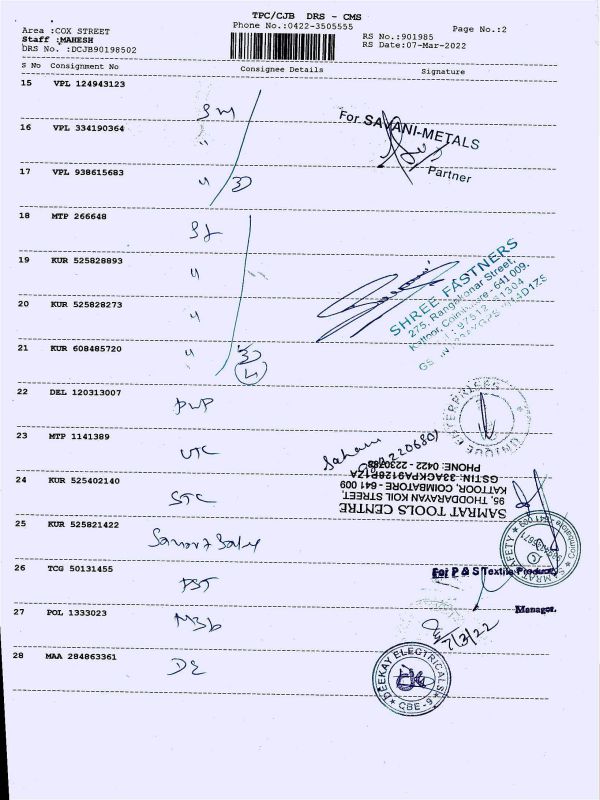 TPC/CJB DRS - CMS
Area :COX STREET
Phone No.:0422-3505555
Page No.:2
Staff :MAHESH
RS No.:901985
DRS No. :DCJB90198502
RS Date:07-Mar-2022
S No Consignment No Consignee Details Signature
15 VPL 124943123
For SAVANI-METALS
16 VPL 334190364
"
Partner
17 VPL 938615683
"
18 MTP 266648
SHREE FASTNERS
275, Rangakonar Street,
Kattoor, Coimbatore - 641 009.
19 KUR 525828893
"
20 KUR 525828273
"
21 KUR 608485720
"
4
22 DEL 120313007
PWP
UNIQUE ENTERPRISES
23 MTP 1141389
UTC
24 KUR 525402140
STC
SAMRAT TOOLS CENTRE
95, THODDARAYAN KOIL STREET,
KATTOOR, COIMBATORE - 641 009
GSTIN: 33ACKPA9128P1ZA
PHONE: 0422 - 2230788
25 KUR 525821422
SAMRAT SAFETY
Coimbatore 641 009
26 TCG 50131455
PST
For P & S Textile Products
Manager.
27 POL 1333023
7/3/22
28 MAA 284863361
DE
DEEKAY ELECTRICALS
CBE-9